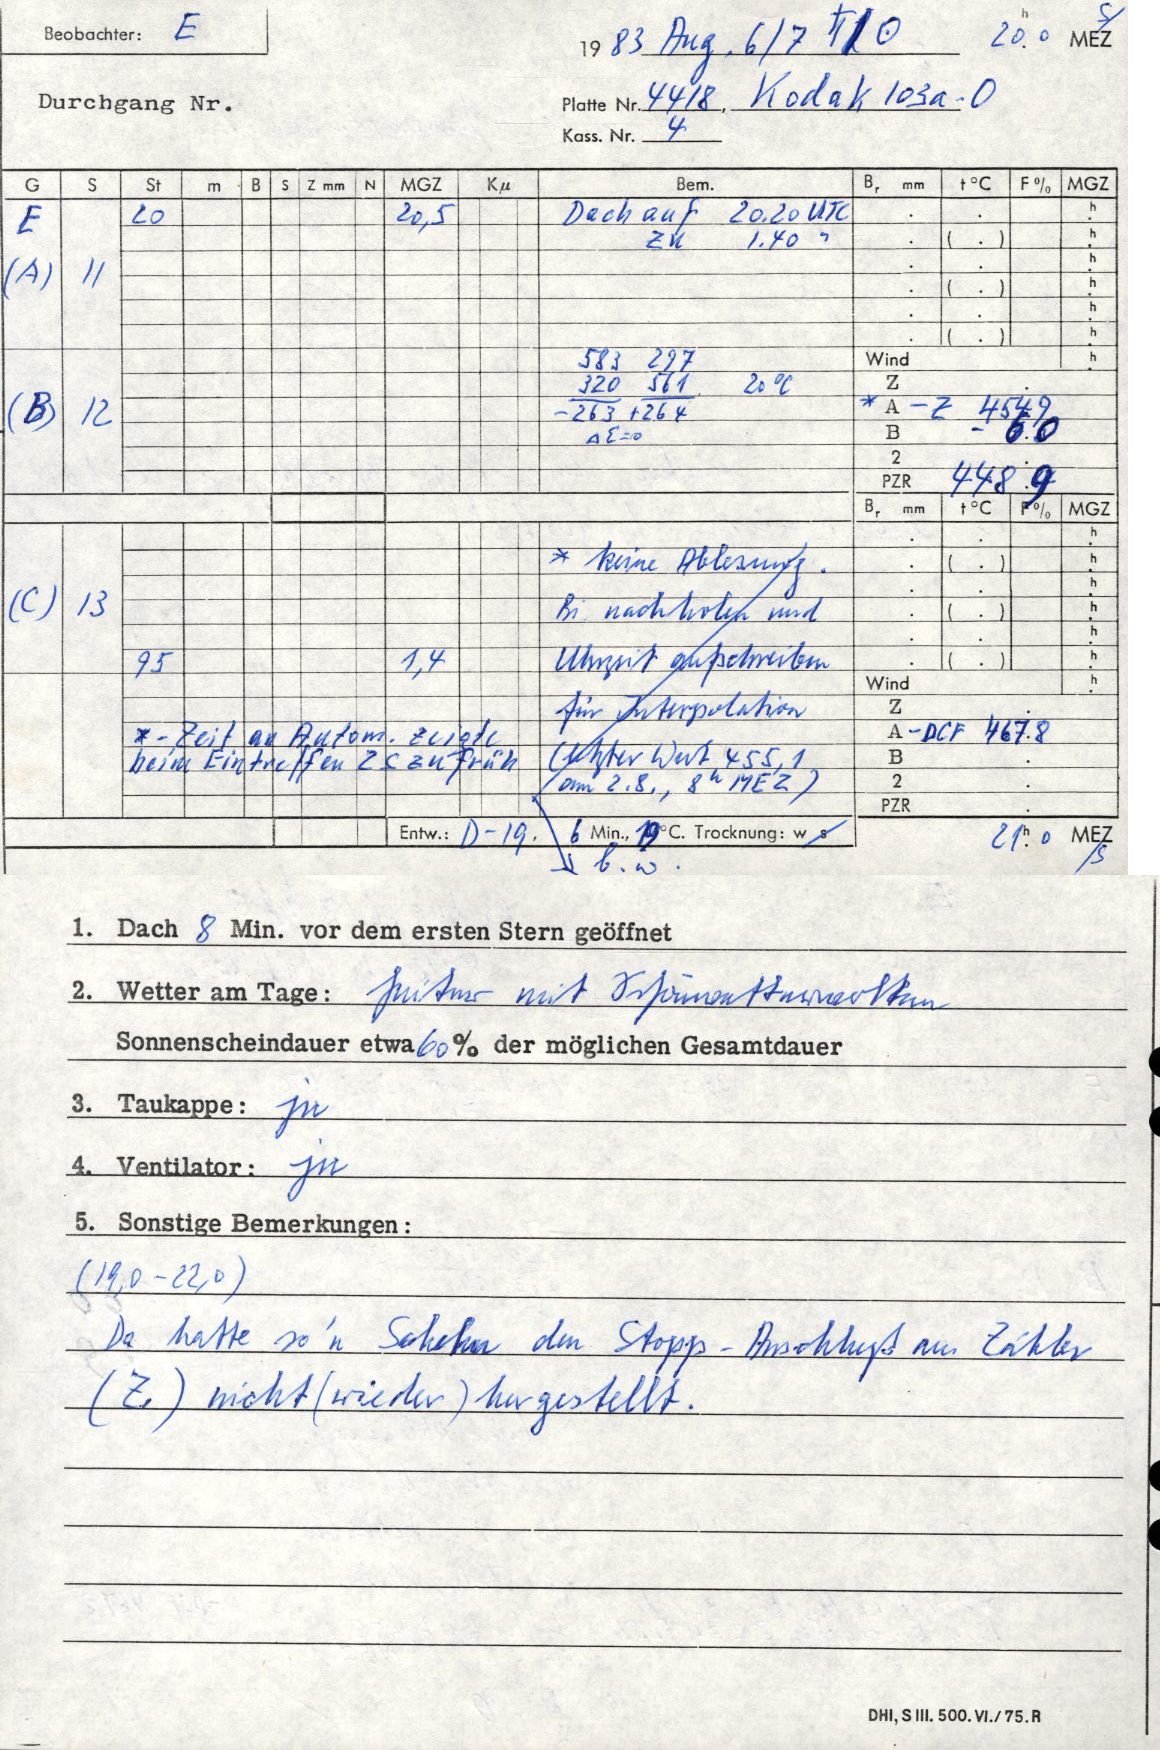 Beobachter: E
19 83 Aug. 6/7 20h.0 MEZ
Durchgang Nr.
Platte Nr. 4418, Kodak 103a-O
Kass. Nr. 4
G S St m B S Z mm N MGZ Kμ Bem. Br mm t°C F% MGZ
E 20 20,5 Dach auf 20.20 UTC . . h
zu 1.40 " . ( . ) h
(A) 11 . . h
. ( . ) h
. . h
. ( . ) h
583 297 Wind h
320 561 20°C Z .
(B) 12 -263 +264 * A -Z 4549
ΔE=0 B - 6.0
2 .
PZR 448.9
Br mm t°C F% MGZ
. . h
* keine Ablesung. . ( . ) h
. . h
(C) 13 Bi nachholen und . ( . ) h
. . h
95 1,4 Uhrzeit aufschreiben . ( . ) h
Wind h
für Interpolation Z .
*-Zeit an Autom. zeigte A -DCF 467.8
beim Eintreffen 2s zu früh (letzter Wert 455,1 B .
am 2.8., 8h MEZ) 2 .
PZR .
Entw.: D-19. 6 Min., 19°C. Trocknung: w s 21h.0 MEZ
b.w.
1. Dach 8 Min. vor dem ersten Stern geöffnet
2. Wetter am Tage: heiter mit Schönwetterwolken
Sonnenscheindauer etwa 60% der möglichen Gesamtdauer
3. Taukappe: ja
4. Ventilator: ja
5. Sonstige Bemerkungen:
(19,0-22,0)
Da hatte so'n den Stopp-Anschluß am Zähler
(Z.) nicht (wieder) hergestellt.
DHI, S III. 500. VI./75. R